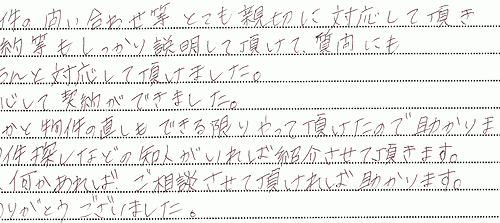 件。問い合わせ等 とても親切に対応して頂き
約等もしっかり説明して頂けて、質問にも
ちんと対応して頂けました。
心して契約ができました。
かと物件の直しもできる限りやって頂けたので助かりま
件探しなどの知人がいれば紹介させて頂きます。
、何かあれば、ご相談させて頂ければ助かります。
りがとうございました。